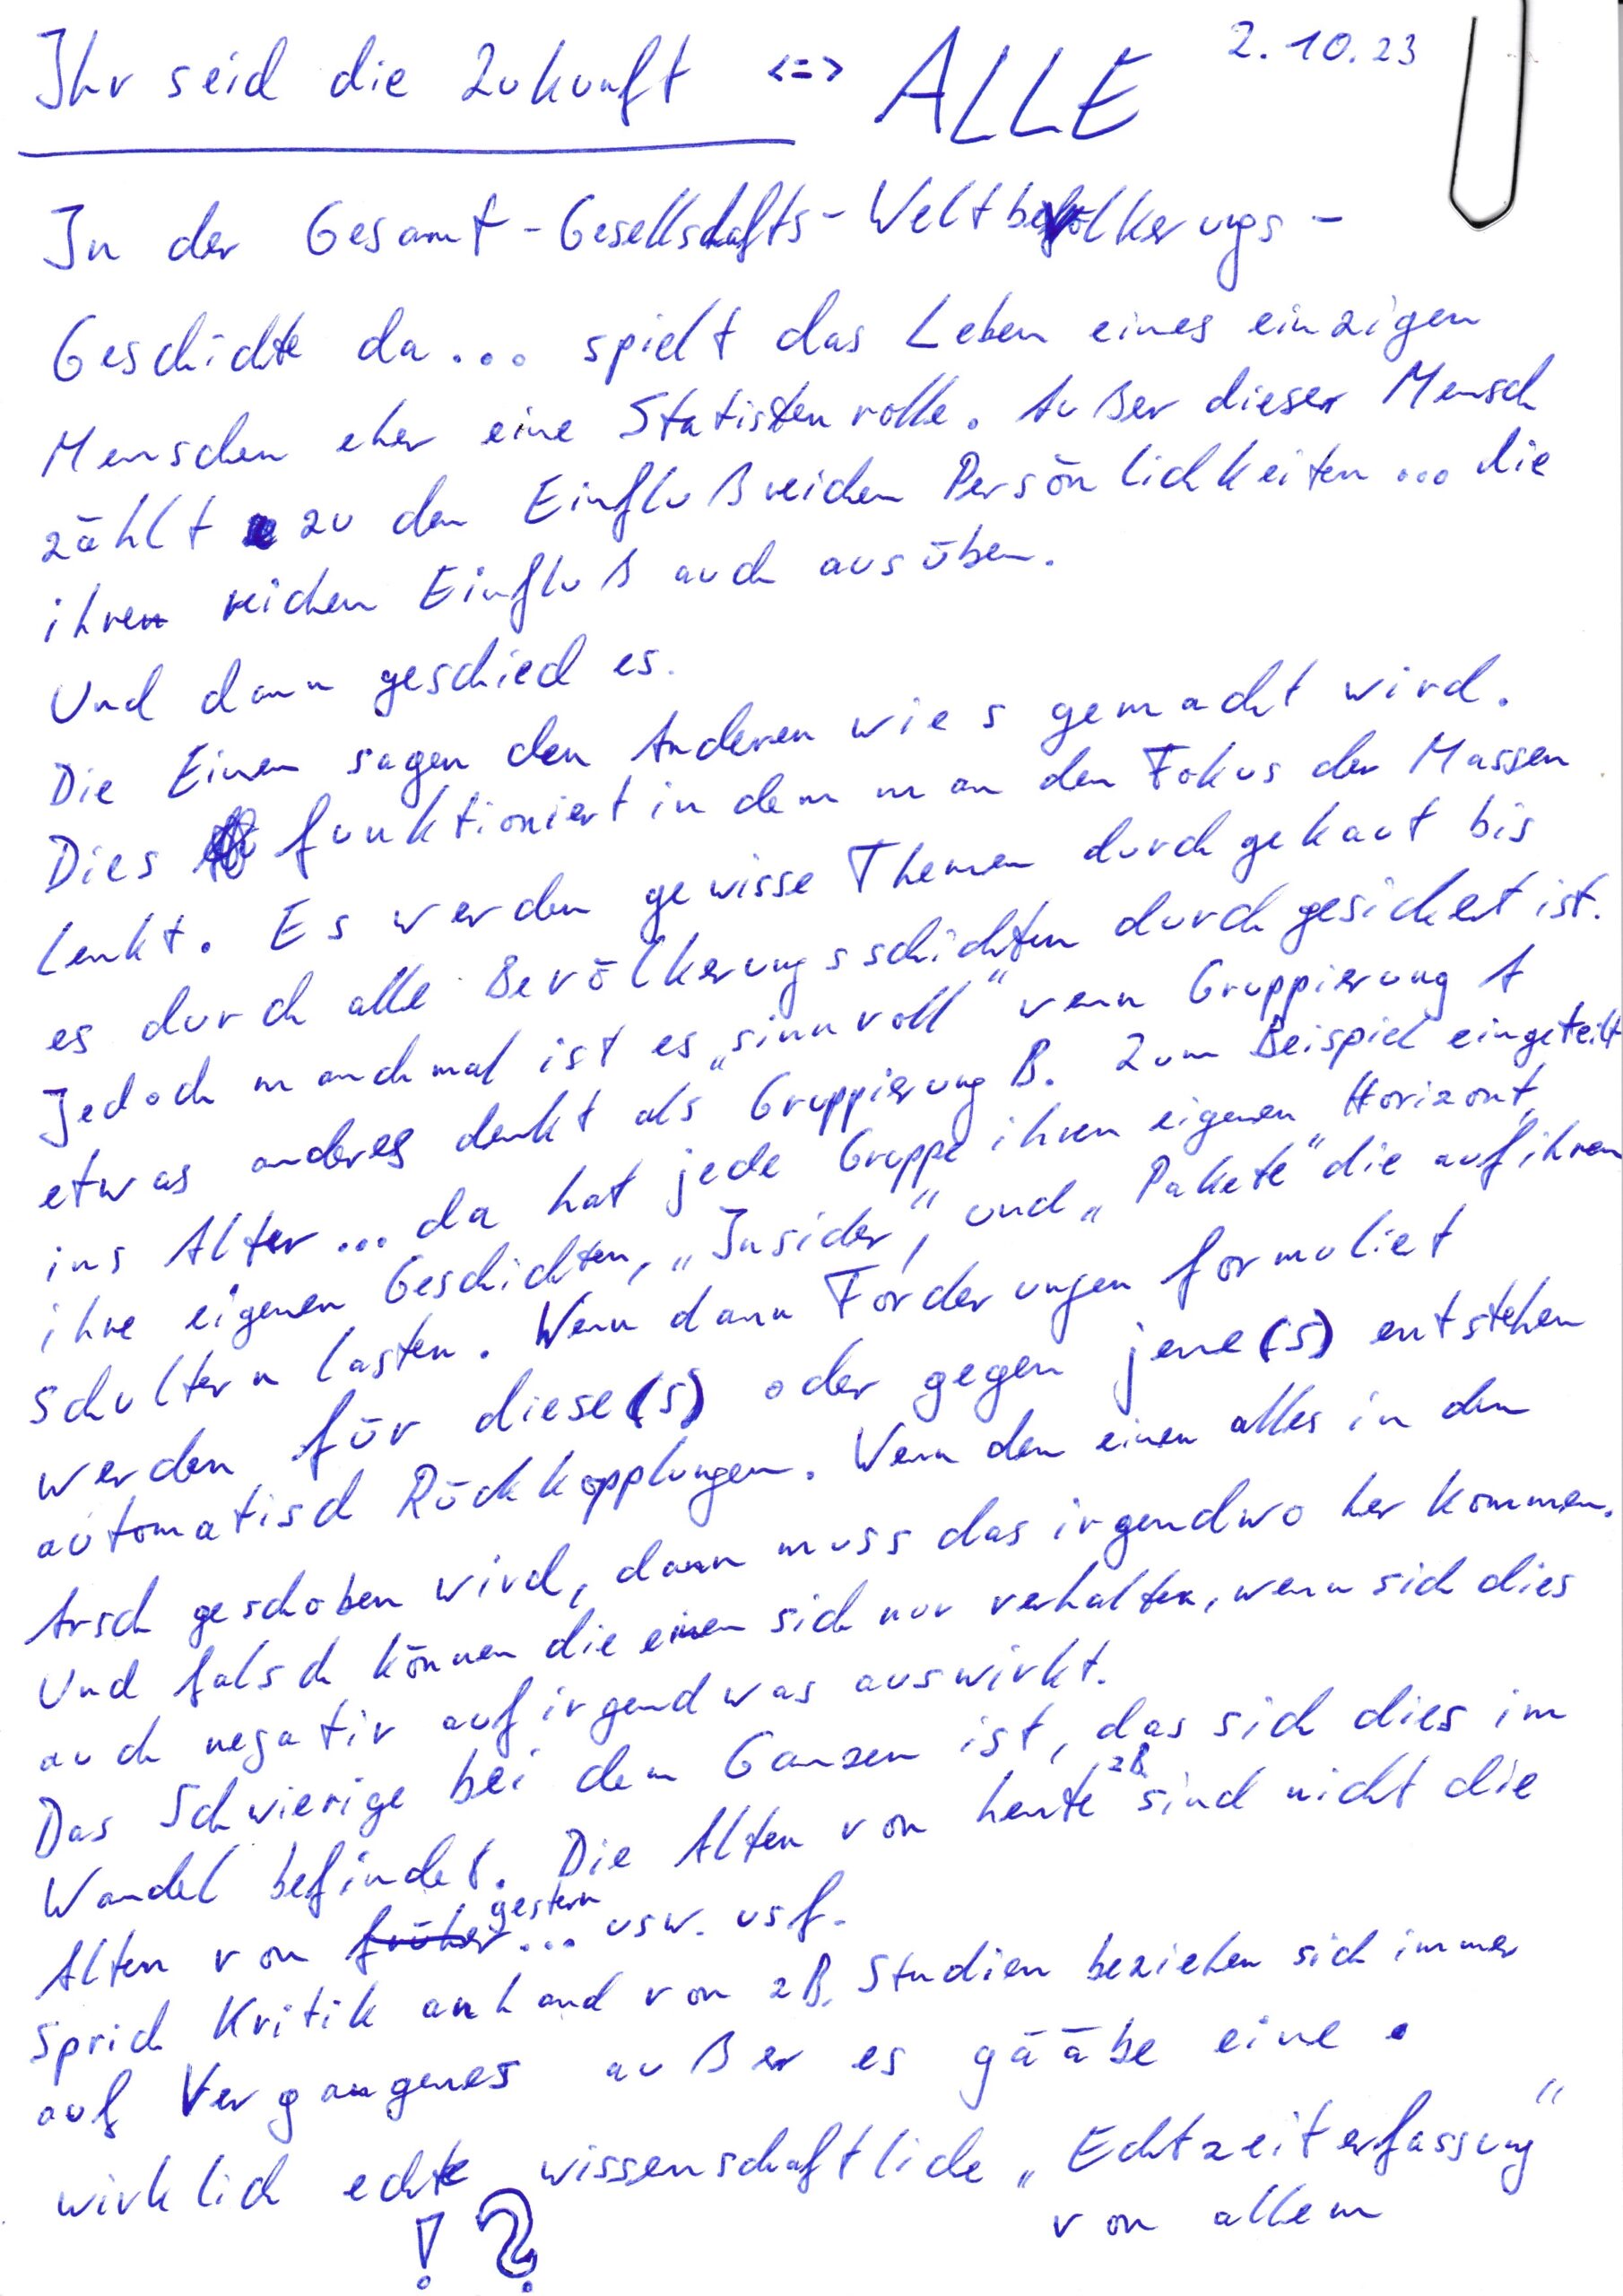 Ihr seid die Zukunft <=> ALLE 2.10.23
In der Gesamt-Gesellschafts-Weltbevölkerungs-
Geschichte da... spielt das Leben eines einzigen
Menschen eher eine Statistenrolle. Außer dieser Mensch
zählt zu den Einflußreichen Persönlichkeiten... die
ihren reichen Einfluß auch ausüben.
Und dann geschied es.
Die Einen sagen den Anderen wie s gemacht wird.
Dies funktioniert in dem man den Fokus der Massen
lenkt. Es werden gewisse Themen durchgekaut bis
es durch alle Bevölkerungsschichten durchgesickert ist.
Jedoch manchmal ist es „sinnvoll“ wenn Gruppierung A
etwas anderes denkt als Gruppierung B. Zum Beispiel eingeteilt
ins Alter... da hat jede Gruppe ihren eigenen Horizont,
ihre eigenen Geschichten, „Insider“, und „Pakete“ die auf ihren
Schultern lasten. Wenn dann Forderungen formuliet
werden für diese(s) oder gegen jene(s) entstehen
automatisch Rückkopplungen. Wenn den einen alles in den
Arsch geschoben wird, dann muss das irgendwo her kommen.
Und falsch können die einen sich nur verhalten, wenn sich dies
auch negativ auf irgendwas auswirkt.
Das Schwierige bei dem Ganzen ist, das sich dies im
Wandel befindet. Die Alten von heute zB. sind nicht die
Alten von früher gestern... usw. usf.
Sprich Kritik anhand von zB. Studien beziehen sich immer
auf Vergangenes außer es gääbe eine
wirklich echte wissenschaftliche „Echtzeiterfassung“
!? von allem